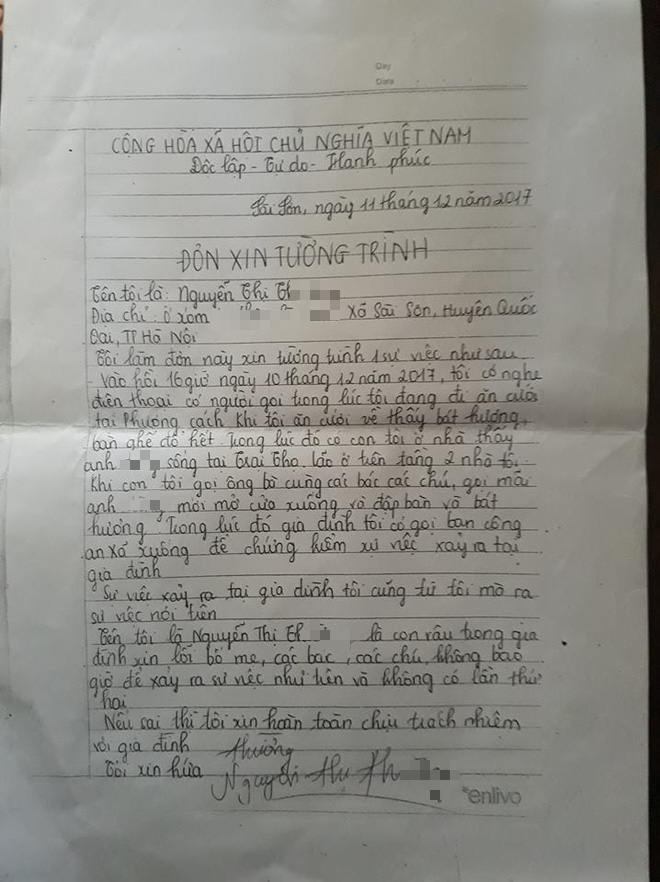 Day
Date
CỘNG HÒA XÃ HỘI CHỦ NGHĨA VIỆT NAM
Độc lập - Tự do - Hạnh phúc
Sài Sơn, ngày 11 tháng 12 năm 2017
ĐƠN XIN TƯỜNG TRÌNH
Tên tôi là: Nguyễn Thị Th
Địa chỉ: ở xóm Xã Sài Sơn, Huyện Quốc
Oai, TP Hà Nội
Tôi làm đơn này xin tường trình 1 sự việc như sau
- Vào hồi 16 giờ ngày 10 tháng 12 năm 2017, tôi có nghe
điện thoại có người gọi trong lúc tôi đang đi ăn cưới
tại Phượng cách khi tôi ăn cưới về thấy bát hương,
bàn ghế đổ hết. Trong lúc đó có con tôi ở nhà thấy
anh , sống tại Trại Tho. lão ở trên tầng 2 nhà tôi
Khi con tôi gọi ông bà cùng các bác các chú, gọi mãi
anh , mới mở cửa xuống và đập bàn và bát
hương. Trong lúc đó gia đình tôi có gọi ban công
an xã xuống để chứng kiếm sự việc xảy ra tại
gia đình
Sự việc xảy ra tại gia đình tôi cũng từ tôi mà ra
sự việc nói trên
Tên tôi là Nguyễn Thị Th , là con râu trong gia
đình xin lỗi bố mẹ, các bác, các chú, không bao
giờ để xảy ra sự việc như trên và không có lần thứ
hai
Nếu sai thì tôi xin hoàn toàn chịu trách nhiệm
với gia đình thưởng
Tôi xin hứa Nguyễn Thị Th
enlivo